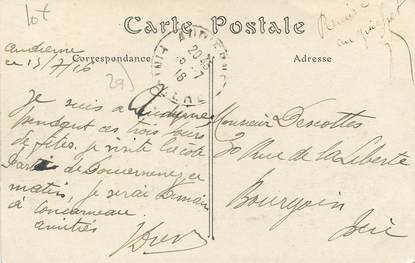 lot
Remise
au guichet
Carte Postale
Correspondance
Adresse
Audierne
ce 15/7/16
29
AUDIERNE
FINISTERE
Je suis à Audierne
pendant ces trois jours
de fêtes. je visite la côte
Parti de Douarnenez ce
matin, je serai demain
à Concarneau
amitiés
Monsieur Descottes
30 Rue de la Liberté
Bourgoin